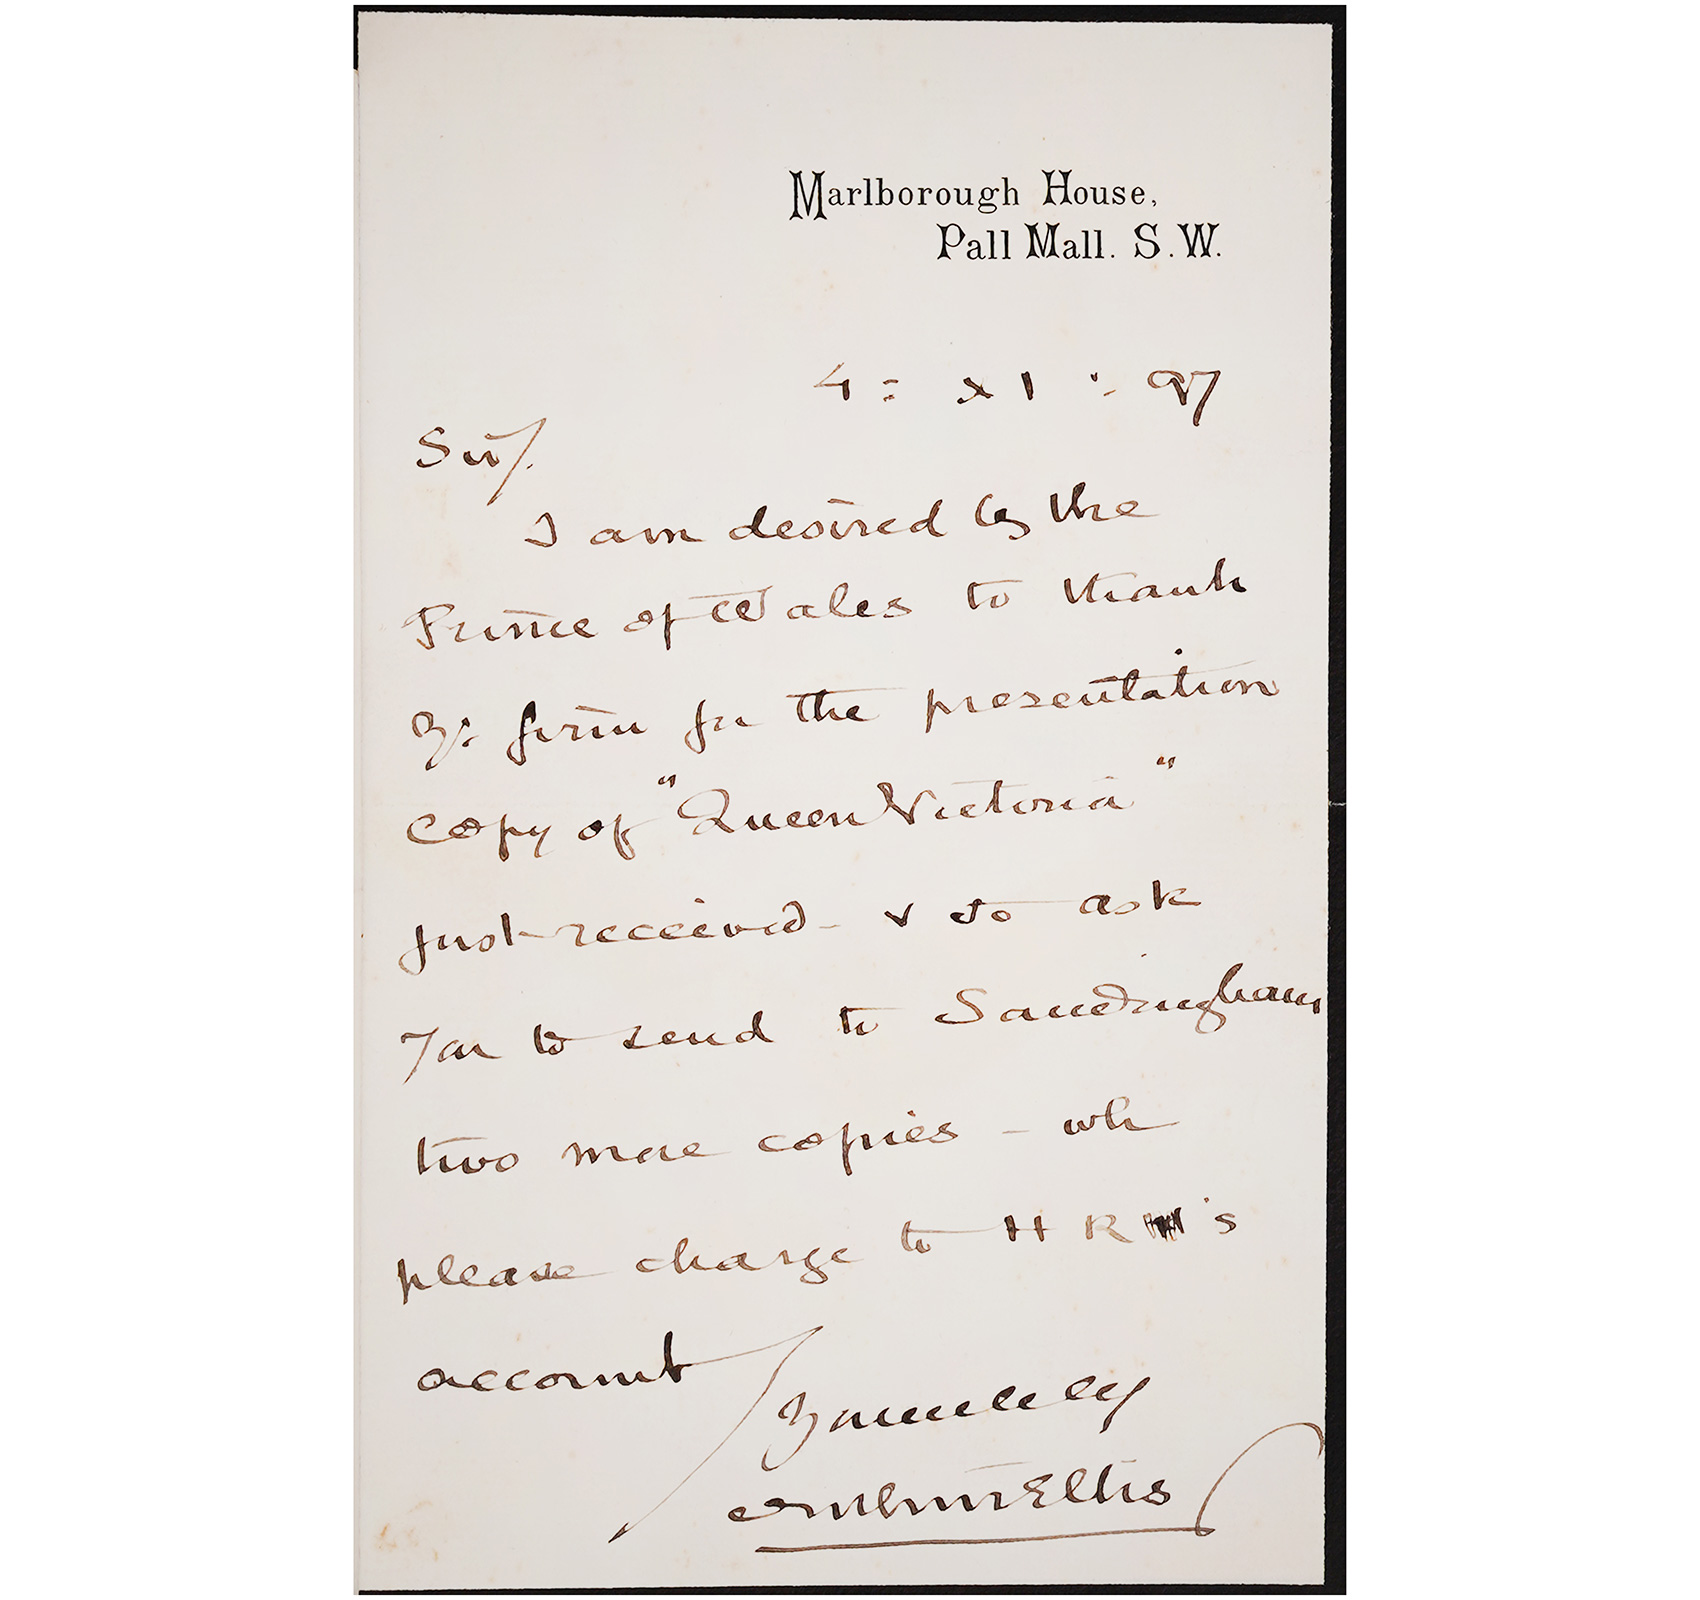 Marlborough House,
Pall Mall. S.W.
4 : XI : 97
Sir/.
I am desired by the
Prince of Wales to thank
yr firm for the presentation
copy of "Queen Victoria"
just received - & to ask
you to send to Sandringham
two more copies - wh
please charge to HRH's
account
Yours
Arthur Ellis